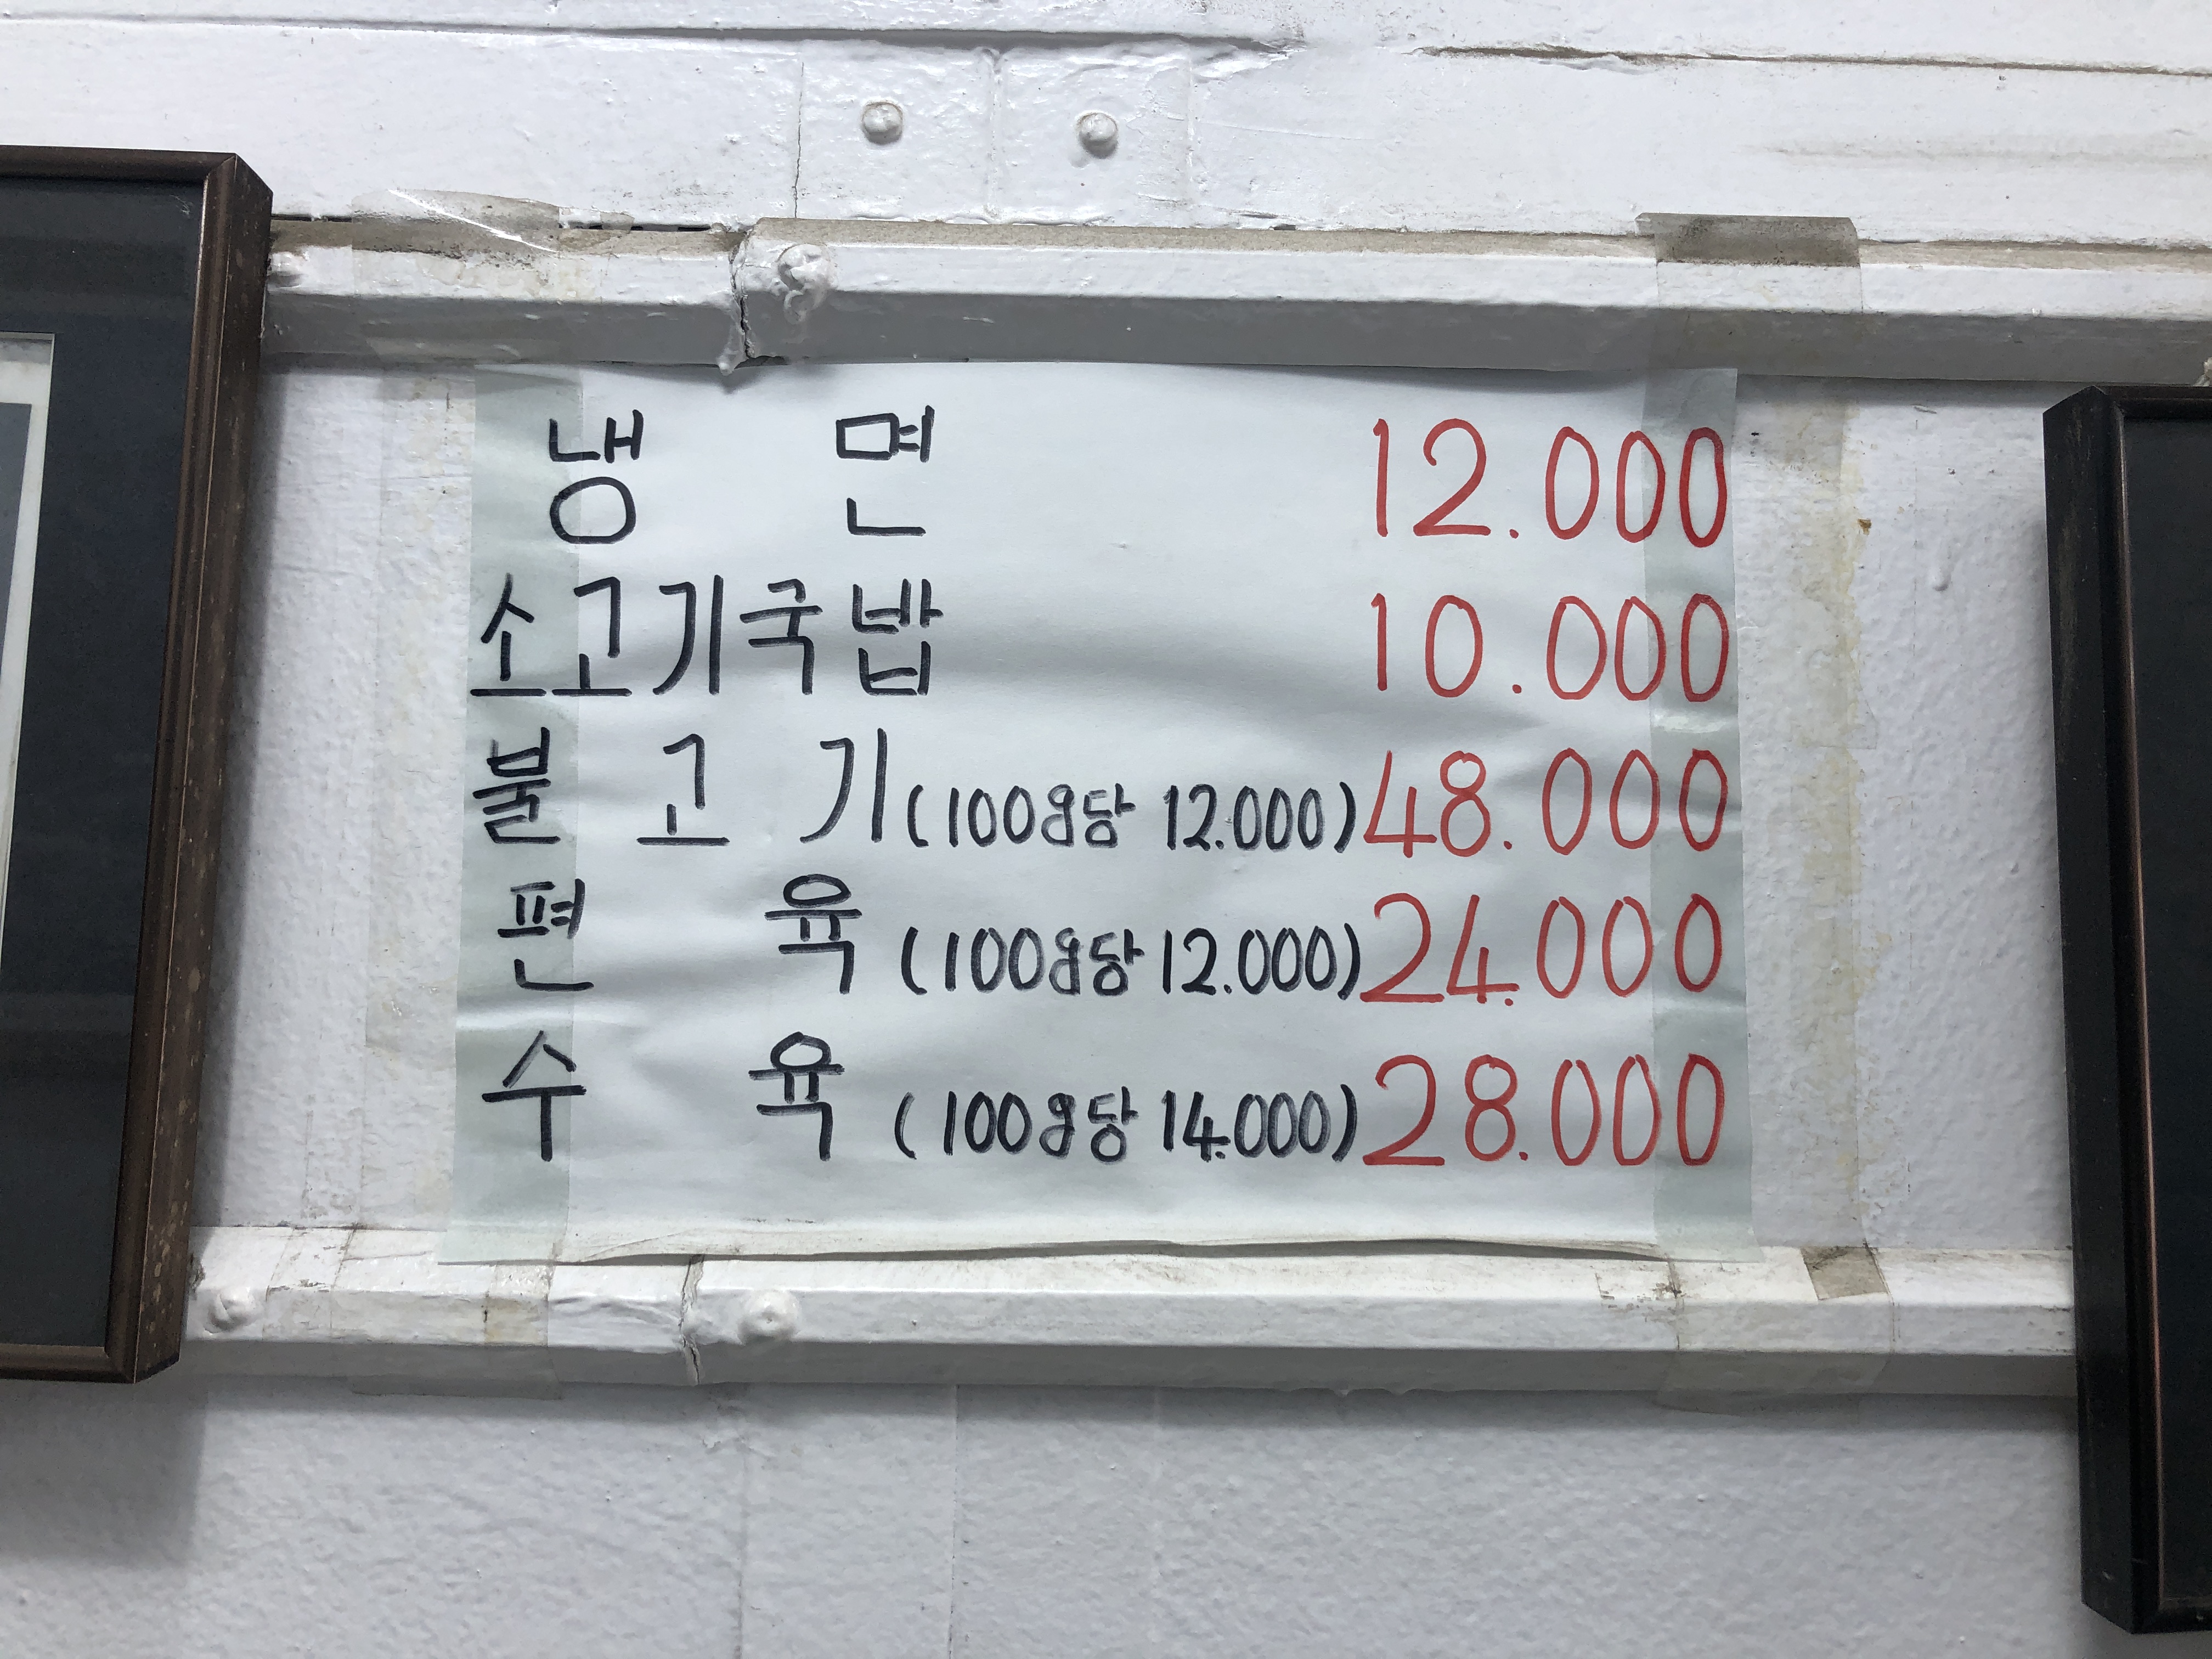 냉 면 12.000
소고기국밥 10.000
불 고 기 (100g당 12.000) 48.000
편 육 (100g당 12.000) 24.000
수 육 (100g당 14.000) 28.000